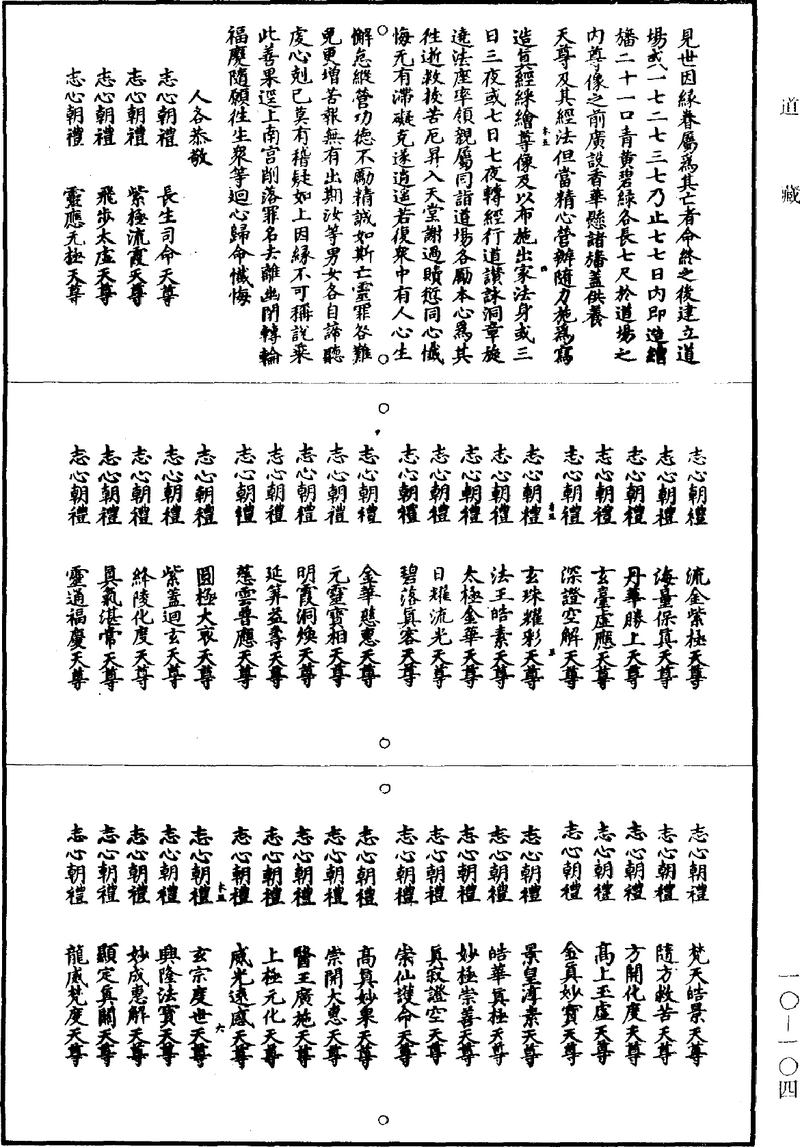 道藏
見世因緣眷屬爲其亡者命終之後建立道
場或一七二七三七乃止七七日內即造繪
旛二十一口青黃碧綠各長七尺於道場之
內尊像之前廣設香華懸諸旛蓋供養
天尊及其經法但當精心營辦隨力施爲寫
造眞經綵繪尊像及以布施出家法身或三
日三夜或七日七夜轉經行道讚詠洞章旋
遶法座率領親屬同詣道場各勵本心爲其
往逝救拔苦厄昇入天堂謝過贖愆同心懺
悔无有滯礙克遂逍遥若復衆中有人心生
懈怠縱營功德不勵精誠如斯亡靈罪咎難
免更增苦報無有出期汝等男女各自諦聽
虔心剋己莫有稽疑如上因緣不可稱說乘
此善果逕上南宮削落罪名去離幽閉轉輪
福慶隨願往生衆等迴心歸命懺悔
人各恭敬
志心朝禮 長生司命天尊
志心朝禮 紫極流霞天尊
志心朝禮 飛步太虛天尊
志心朝禮 靈應无極天尊
志心朝禮 流金紫極天尊
志心朝禮 海量保眞天尊
志心朝禮 丹華勝上天尊
志心朝禮 玄臺虛應天尊
志心朝禮 深證空解天尊
志心朝禮 玄珠耀彩天尊
志心朝禮 法王皓素天尊
志心朝禮 太極金華天尊
志心朝禮 日耀流光天尊
志心朝禮 碧落眞容天尊
志心朝禮 金華慈惠天尊
志心朝禮 元靈寶相天尊
志心朝禮 明霞洞煥天尊
志心朝禮 延筭益壽天尊
志心朝禮 慈雲普應天尊
志心朝禮 圓極大衆天尊
志心朝禮 紫蓋迴玄天尊
志心朝禮 絳陵化度天尊
志心朝禮 眞氣湛常天尊
志心朝禮 靈通福慶天尊
志心朝禮 梵天皓景天尊
志心朝禮 隨方救苦天尊
志心朝禮 方開化度天尊
志心朝禮 高上玉虛天尊
志心朝禮 金眞妙寶天尊
志心朝禮 景皇淳素天尊
志心朝禮 皓華眞極天尊
志心朝禮 妙極崇善天尊
志心朝禮 眞寂證空天尊
志心朝禮 崇仙護命天尊
志心朝禮 高眞妙果天尊
志心朝禮 崇開大惠天尊
志心朝禮 醫王廣施天尊
志心朝禮 上極元化天尊
志心朝禮 威光遠感天尊
六
志心朝禮 玄宗度世天尊
志心朝禮 興隆法寶天尊
志心朝禮 妙成惠解天尊
志心朝禮 顯定眞關天尊
志心朝禮 龍威梵度天尊
一〇—一〇四